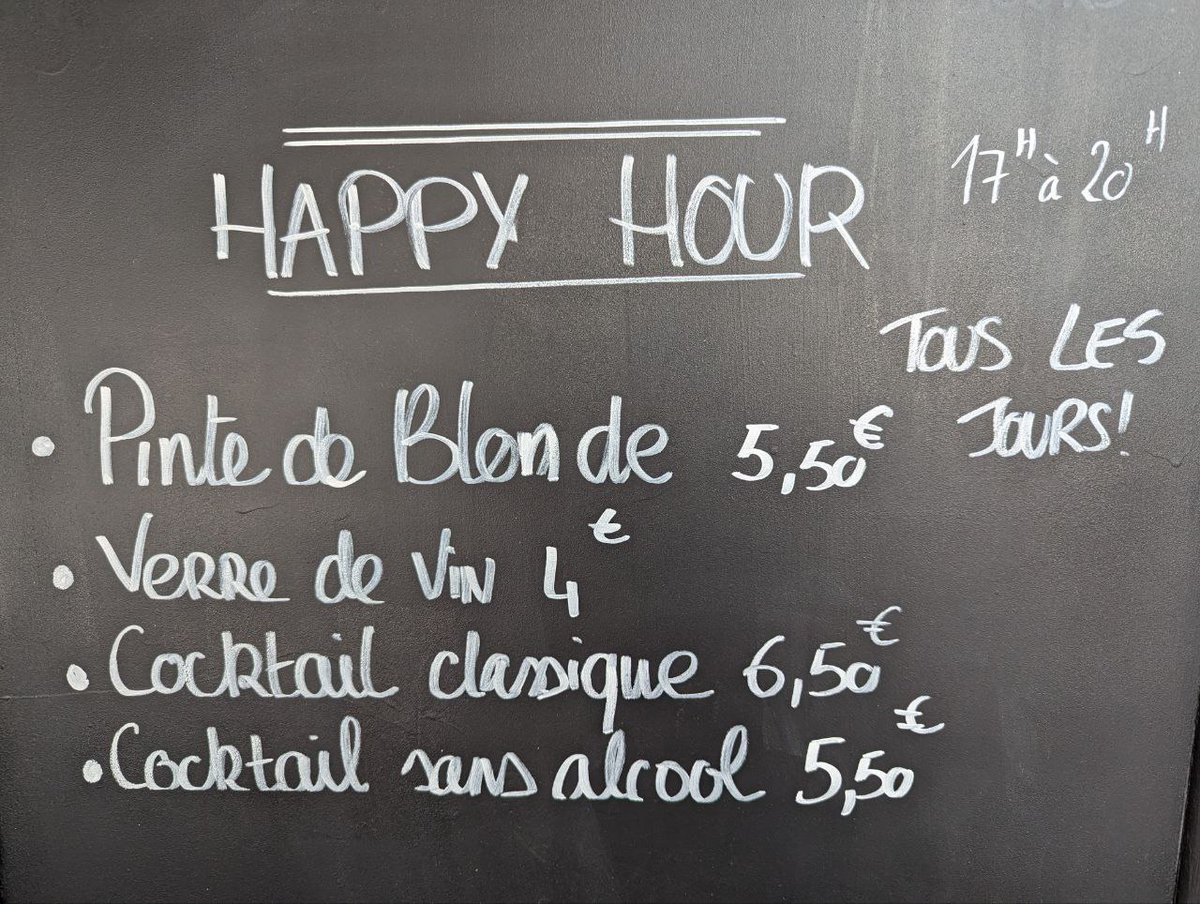 HAPPY HOUR 17H à 20H
TOUS LES
JOURS!
• Pinte de Blonde 5,50€
• Verre de Vin 4€
• Cocktail classique 6,50€
• Cocktail sans alcool 5,50€